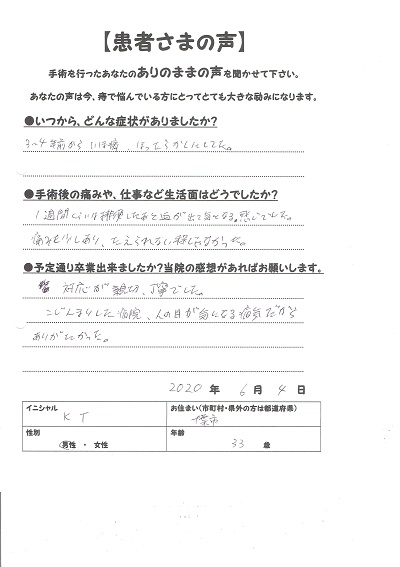 【患者さまの声】
手術を行ったあなたのありのままの声を聞かせて下さい。
あなたの声は今、痔で悩んでいる方にとってとても大きな励みになります。
●いつから、どんな症状がありましたか?
3~4年前から いぼ痔、ほったらかしにしてた。
●手術後の痛みや、仕事など生活面はどうでしたか?
1週間くらいは排便したあと血が出て気になる。感じでした。
痛みも少しあり、たえられない程じゃなかった。
●予定通り卒業出来ましたか?当院の感想があればお願いします。
対応が親切、丁寧でした。
こじんまりした病院、人の目が気になる病気だから
ありがたかった。
2020 年 6 月 4 日
イニシャル K T
お住まい(市町村・県外の方は都道府県) 千葉市
性別 男性 ・ 女性
年齢 33 歳